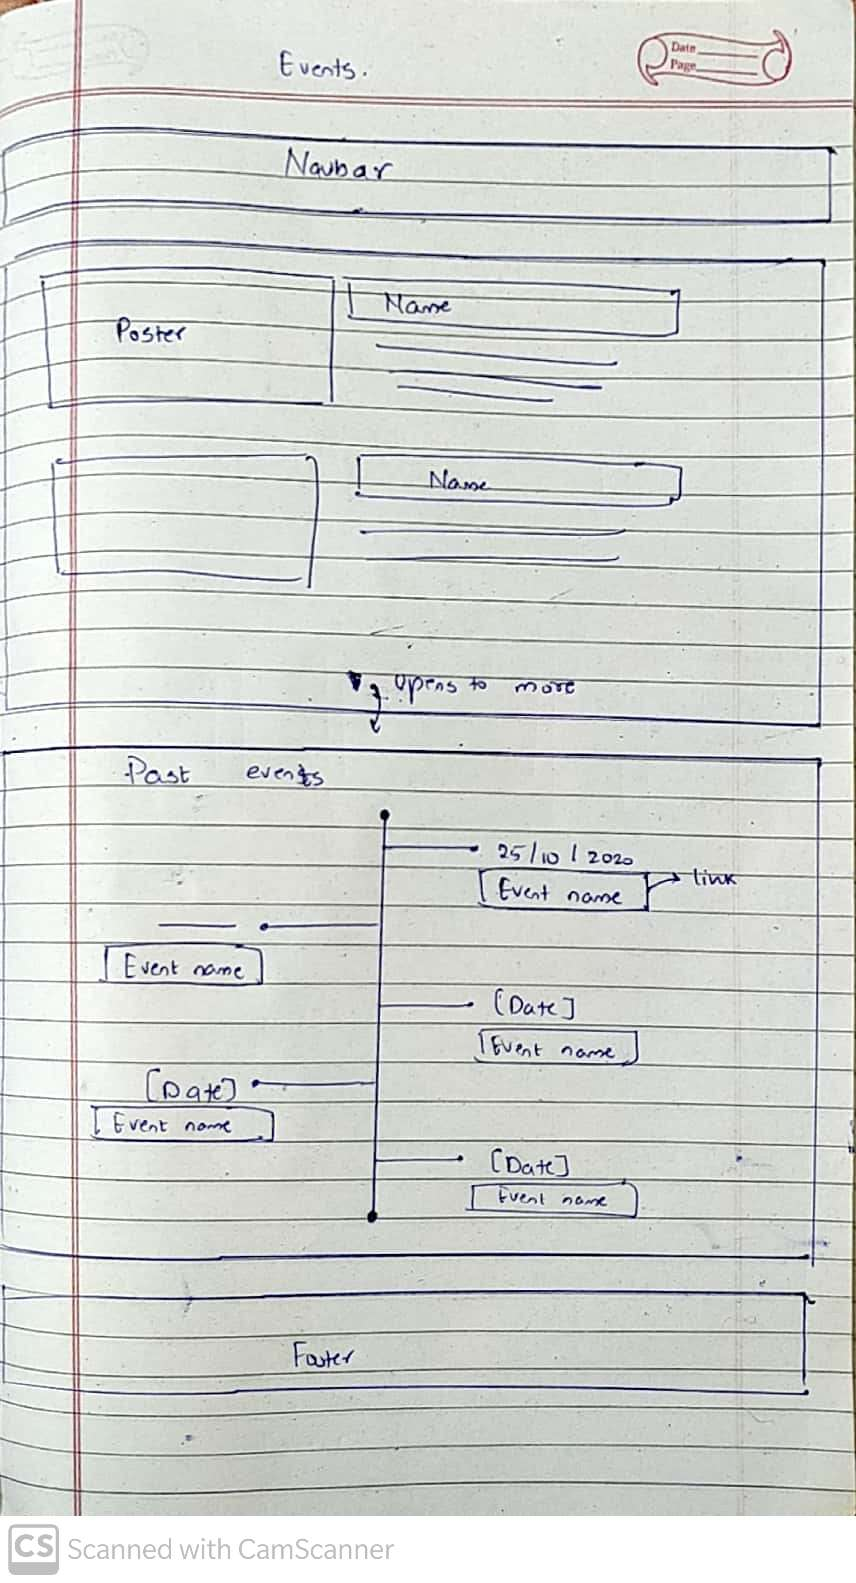 Events.
Date
Page
Navbar
Poster
Name
Name
opens to more
Past events
25/10/2020
Event name
link
Event name
[Date]
Event name
[Date]
Event name
[Date]
Event name
Footer
CS Scanned with CamScanner